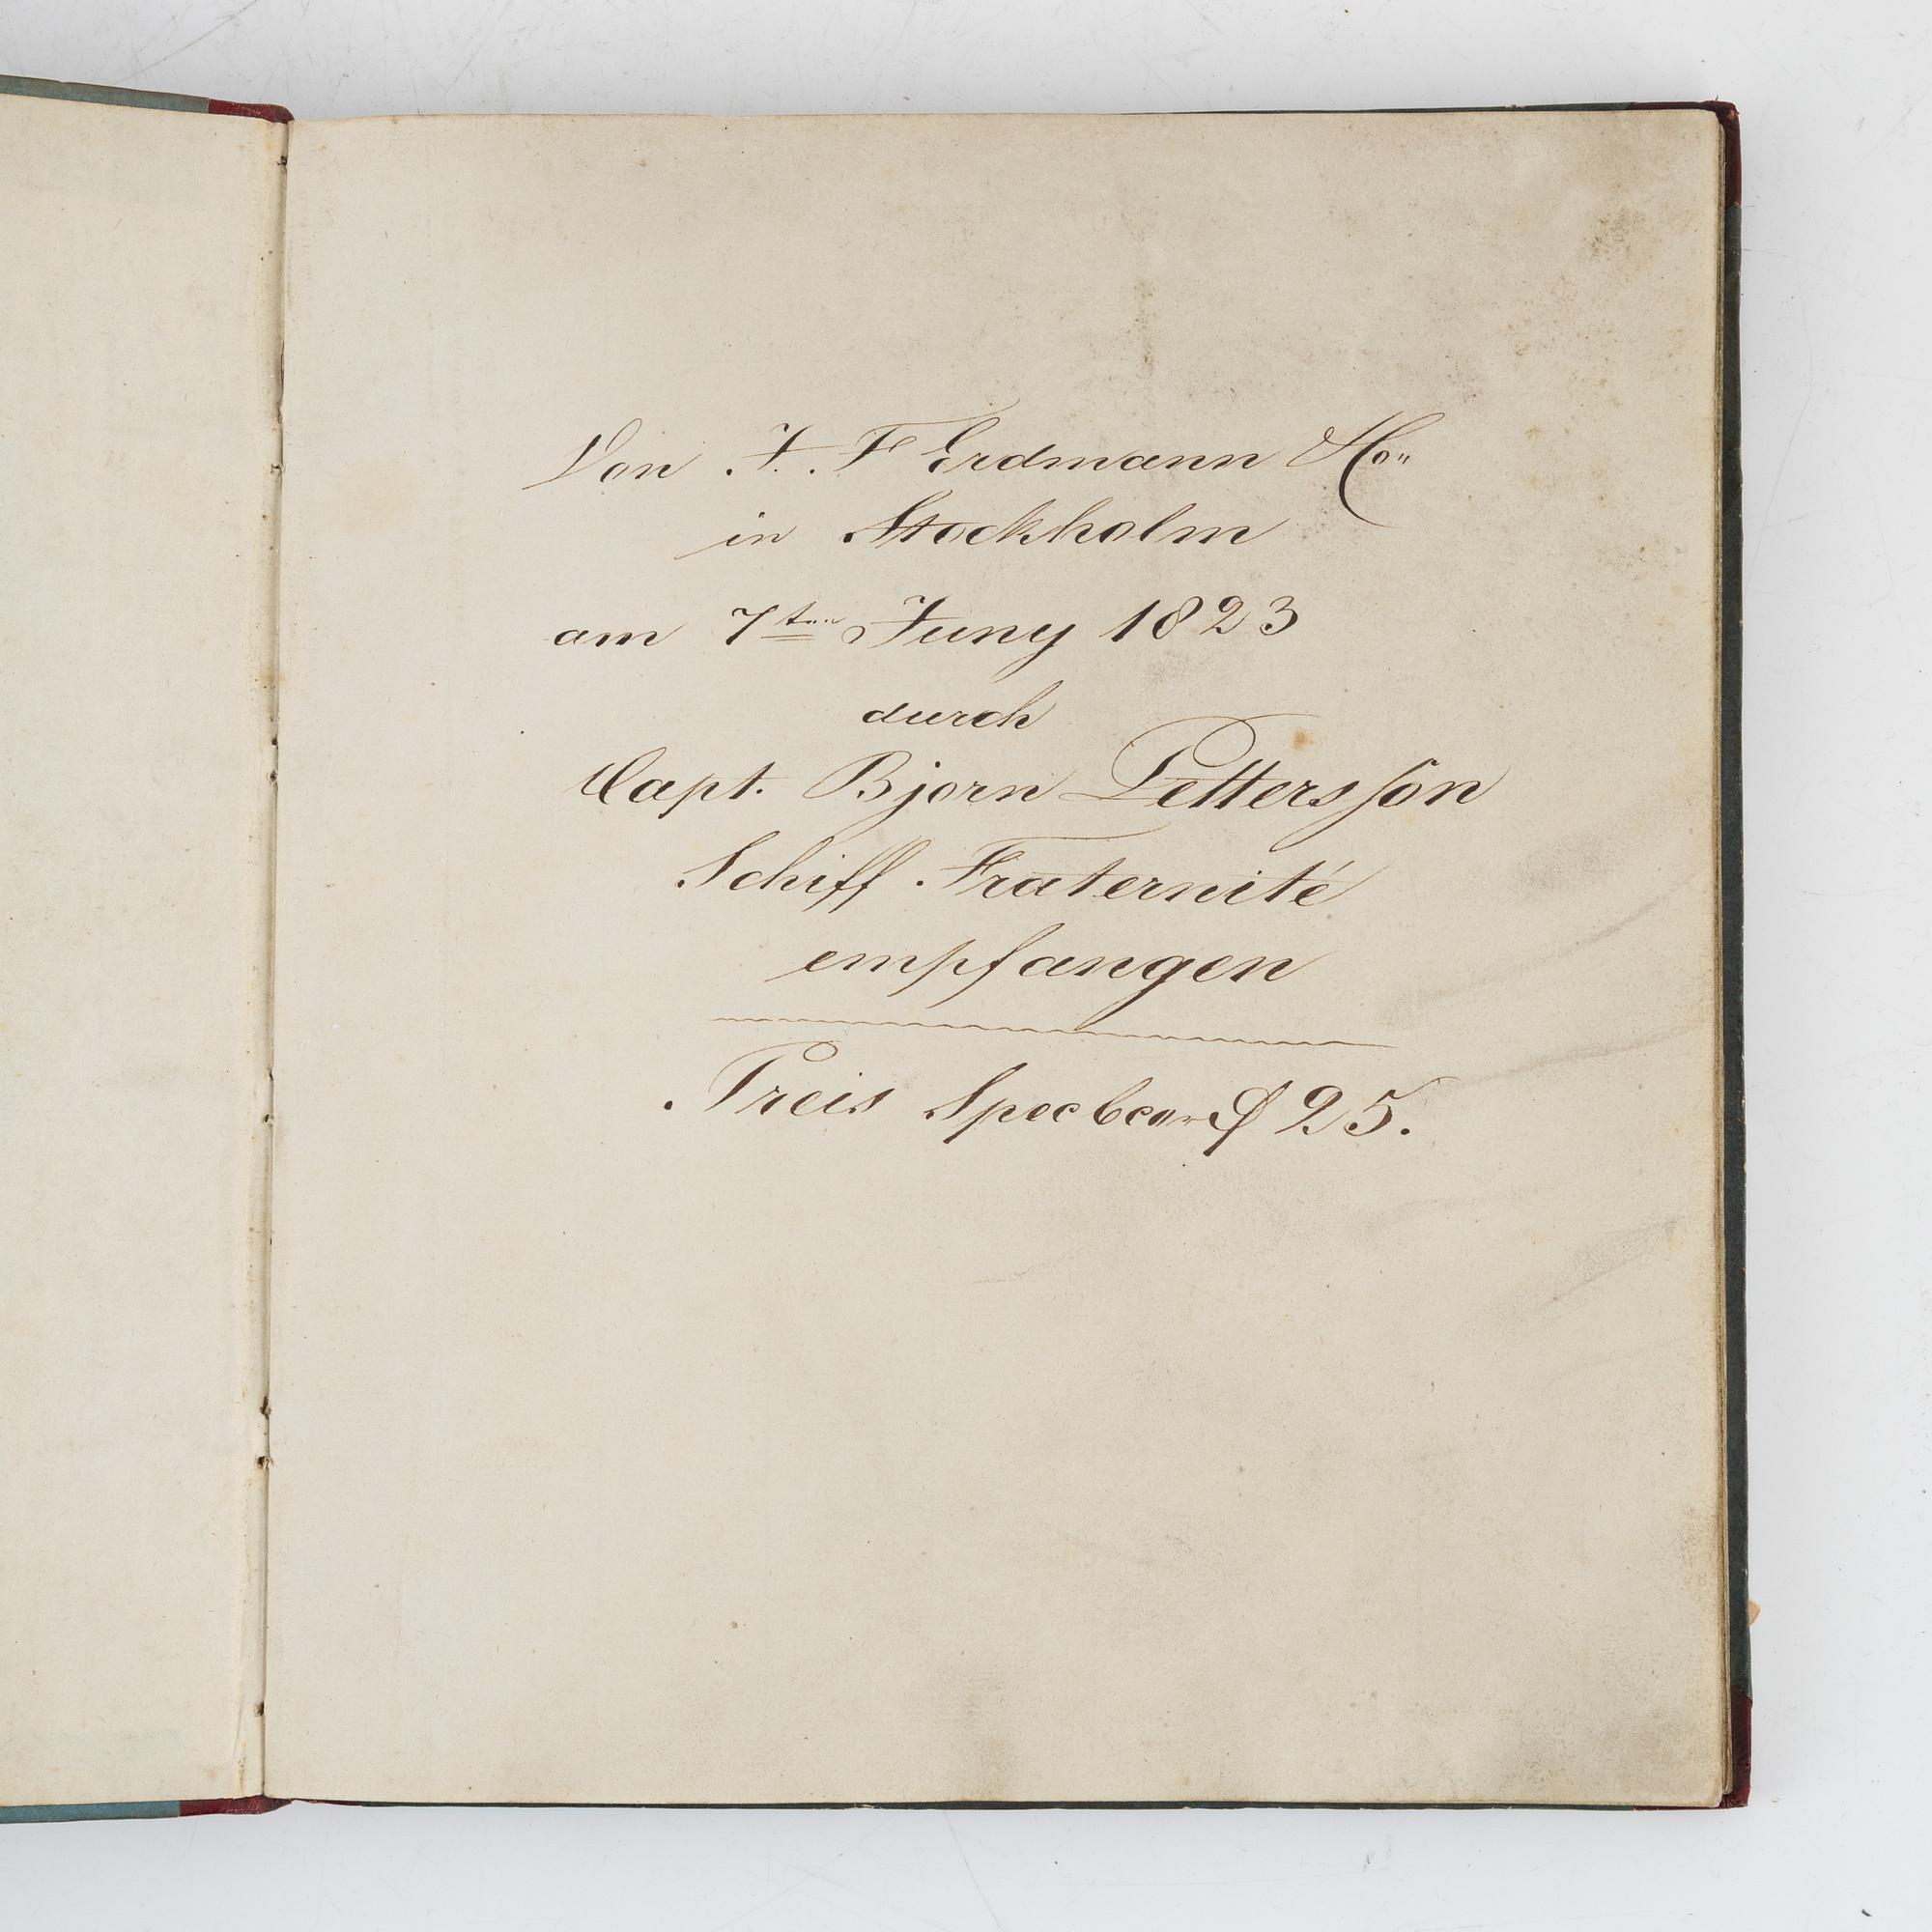 Von J. F Erdmann
in Stockholm
am 7ten Juny 1823
durch
Capt. Bjorn Pettersson
Schiff Fraternité
empfangen
Preis 25.